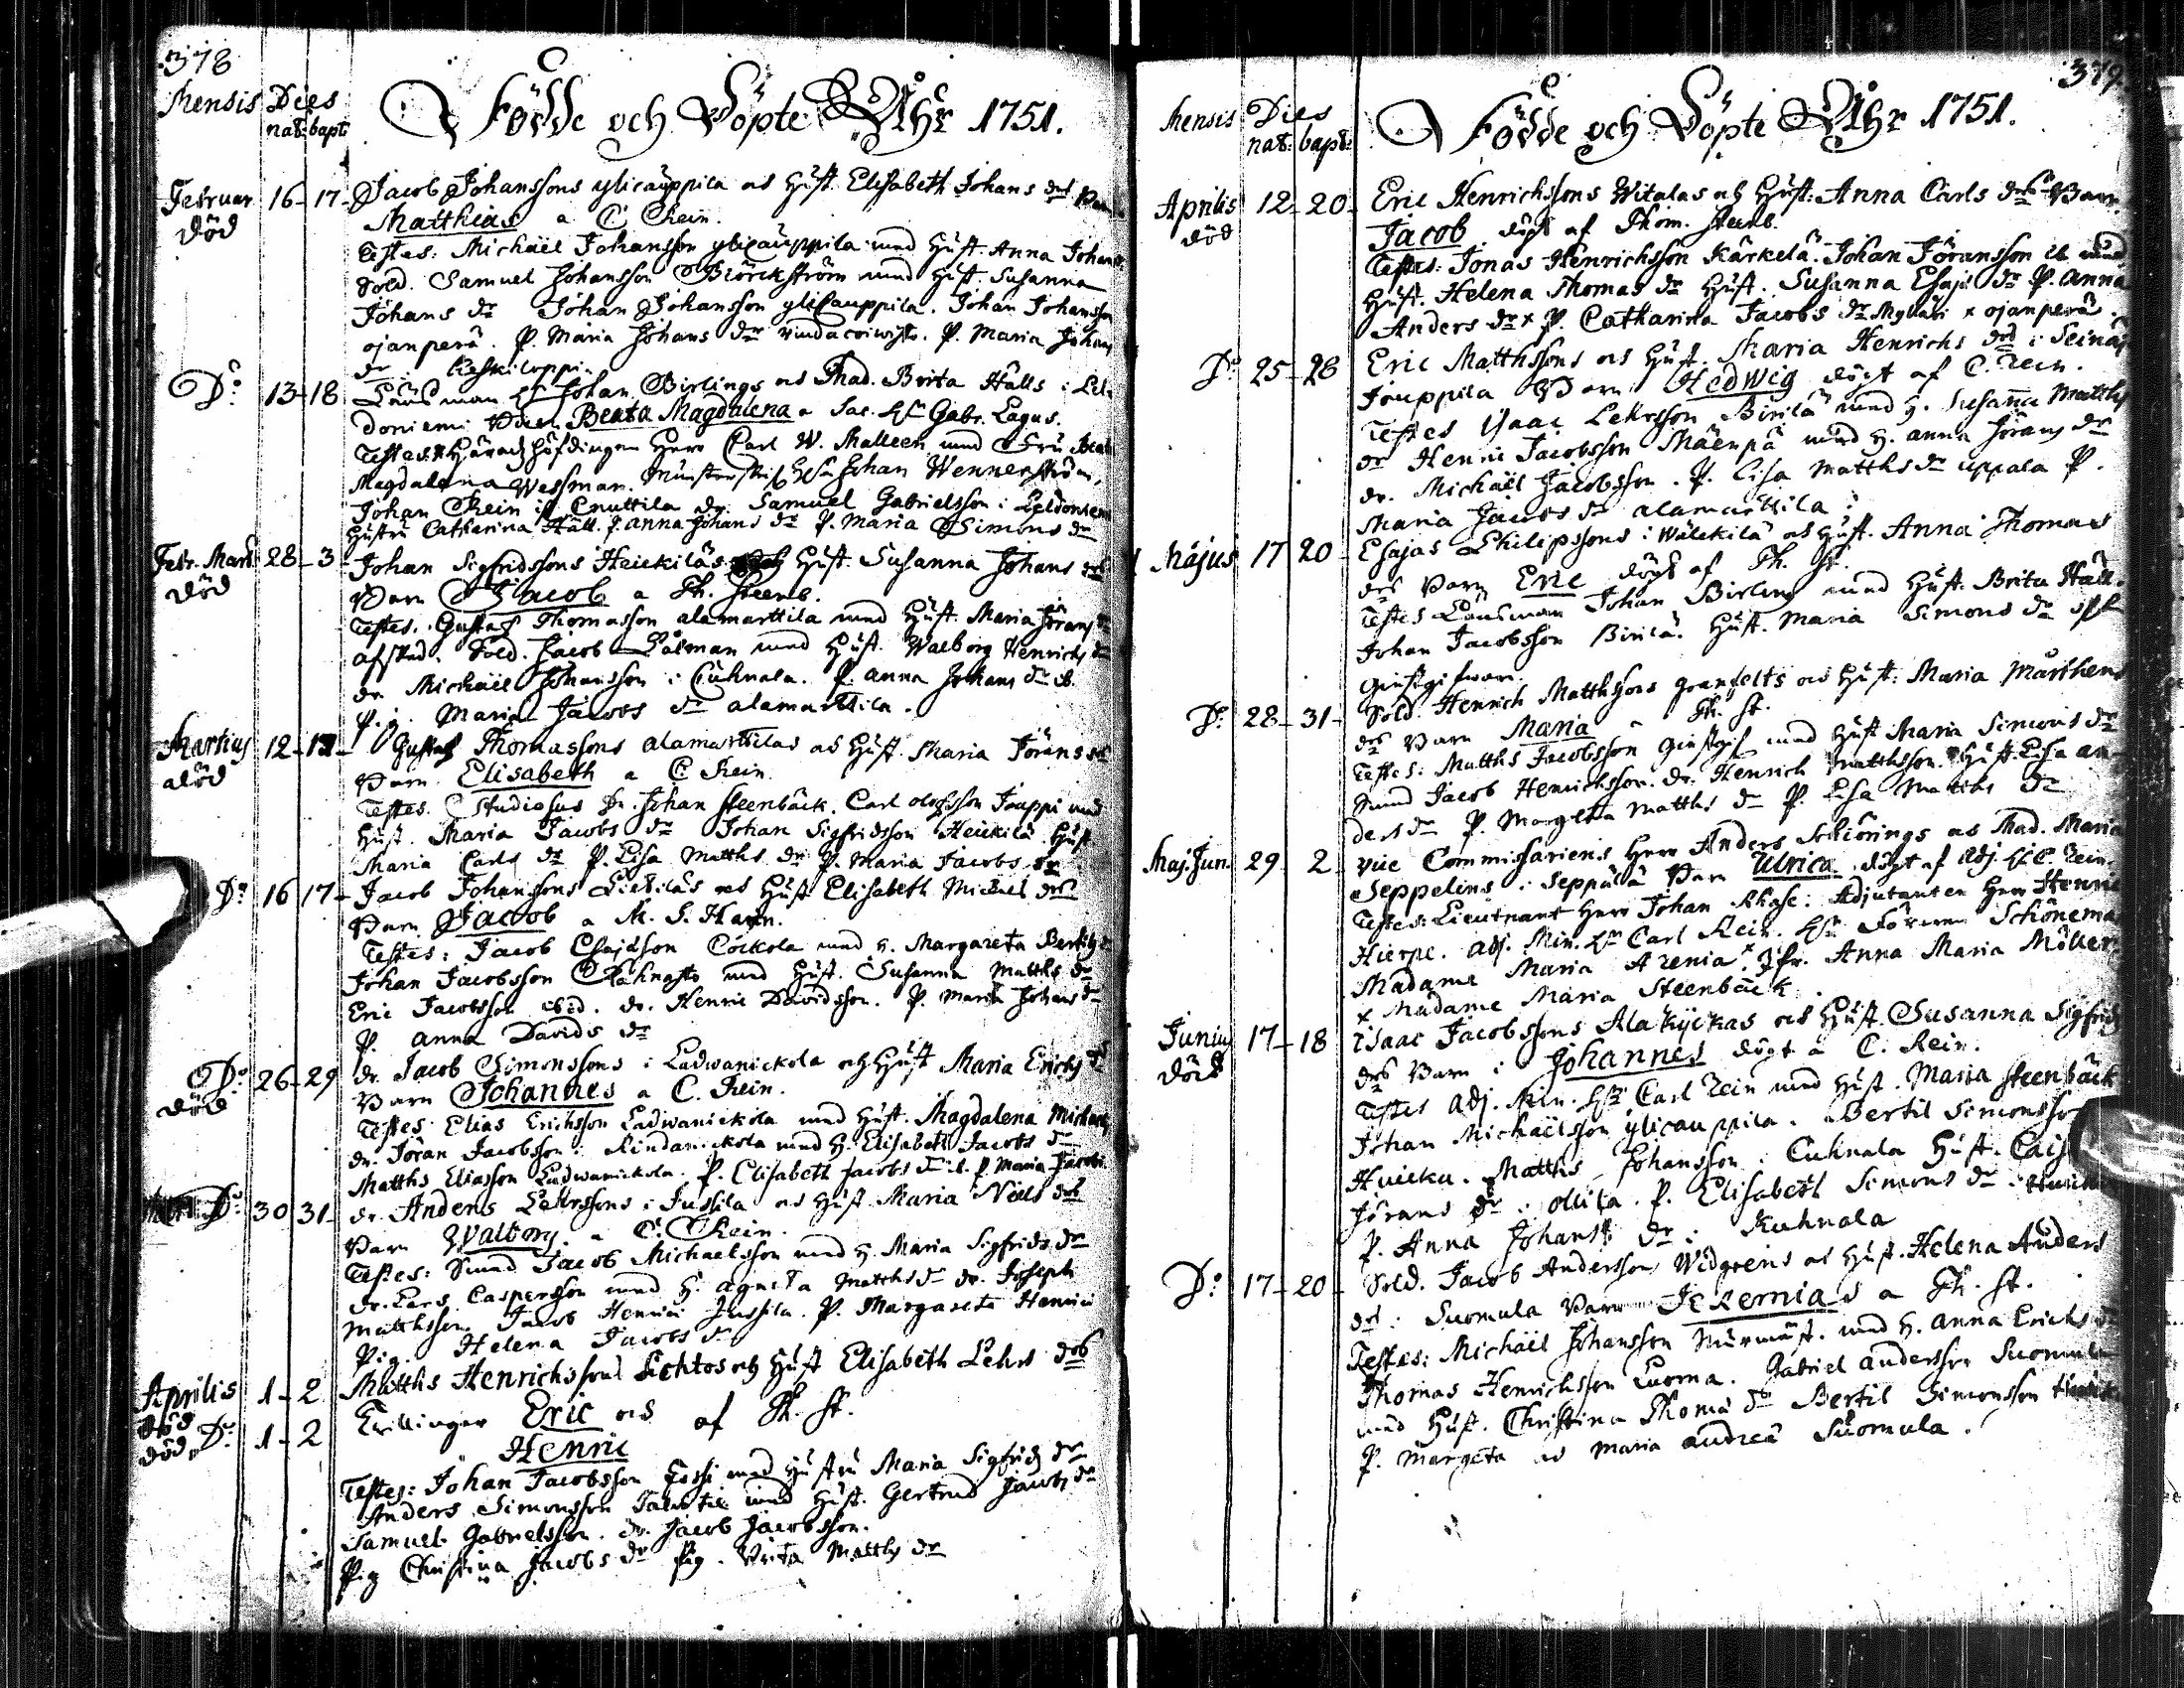 378
Mensis Dies
nat: bapt:
Födde och Döpte Åhr 1751.
Februar 16-17- Jacob Johanssons ylicauppila och Hust. Elisabeth Johans drs Barn
död Matthias a C. Rein.
Testes: Michäel Johansson ylicauppila med Hust. Anna Johans
Sold. Samuel Johansson Björckström med Hust. Susanna
Johans dr Johan Johansson ylicauppila. Johan Johansson
ojanperä. P. Maria Johans dr P. Maria Johans
dr Keskiloppi.
Do 13-18 Länsman Hr Johan Birlings och Mad. Brita Hälls i Lel-
doniemi Barn Beata Magdalena a Sac. Hr Gabr. Lagus.
Testes: Häradshöfdingen Herr Carl W. Malleen med Fru Beata
Magdalena Wessman. Münsterskrif. Johan Wennerström,
Johan Rein i Cnuttila dr. Samuel Gabrielsson i Leldoniemi
Hustru Catharina Häll. P. Anna Johans dr P. Maria Simons dr
Febr. Mart 28-3- Johan Sigfridssons Heickiläs och Hust. Susanna Johans drs
död Barn Jacob a Th. Steenb.
Testes. Gustaf Thomasson alamarttila med Hust. Maria Jörans dr
afsked. Sold. Jacob Lälman med Hust. Walborg Henrichs dr
dr. Michäel Johansson i Cuhnala. P. Anna Johans dr ib.
Pig. Maria Jacobs dr alamarttila.
Martius 12-17- Gustaf Thomassons alamarttilas och Hust. Maria Jörans drs
död Barn Elisabeth a C. Rein.
Testes. Studiosus Dn. Johan Steenbäck. Carl olofsson Jouppi med
Hust. Maria Jacobs dr Johan Sigfridsson Heickilä Hust.
Maria Carls dr P. Lisa Matths dr P. Maria Jacobs dr
Do 16 17- Jacob Johanssons och Hust Elisabeth Michels drs
Barn Jacob a M. S.
Testes: Jacob Esajæsson Cockola med H. Margareta Bertils
Johan Jacobsson med Hust. Susanna Matths dr
Eric Jacobsson ibid. dr. Henric Davidsson. P. Maria Johans dr
P. Anna Davids dr
Do 26-29 dr. Jacob Simonssons i Ladwanickola och Hust Maria Erichs
död Barn Johannes a C. Rein.
Testes: Elias Erichsson Ladwanickola med Hust. Magdalena Michaels
dr. Jöran Jacobsson med H. Elisabeth Jacobs dr
Matths Eliasson Ladwanickola. P. Elisabeth Jacobs dr ib. P. Maria Jacobs
Do 30 31- dr. Anders Lehrssons i Jussila och Hust Maria Niels drs
Barn Walborg a C. Rein.
Testes: Smed Jacob Michaelsson med H. Maria Sigfrids dr
dr. Lars Caspersson med H. Agneta Matths dr dr. Joseph
Matthsson. Jacob Henrici Jussila. P. Margareta Henrici
Pig. Helena Jacobs dr
Aprilis 1-2 Matths Henrichssons Lehtos och Hust Elisabeth Lehrs drs
död Trillingar Eric och af Th. St.
död Do 1-2 Henric
Testes: Johan Jacobsson med Hustru Maria Sigfrids dr
Anders Simonsson med Hust. Gertrud Jacobs dr
Samuel Gabrielsson. dr. Jacob Jacobsson.
Pig Christina Jacobs dr Pig. Brita Matths dr
379
Mensis Dies
nat: bapt:
Födde och Döpte Åhr 1751.
Aprilis 12-20- Eric Henrichssons Witalas och Hust. Anna Carls drs Barn.
död Jacob döpt af Thom. Steenb.
Testes: Jonas Henrichsson Kärkelä. Johan Jöransson ib med
Hust. Helena Thomas dr Hust. Susanna Esajæ dr P. Anna
Anders dr x P. Catharina Jacobs dr x ojanperä.
Do 25-28 Eric Matthssons och Hust. Maria Henrichs drs i Seinäj
Jouppila Barn Hedwig döpt af C. Rein.
Testes Isaac Lehrsson Birilä med H. Susanna Matths
dr Henric Jacobsson Mäenpä med H. Anna Jörans dr
dr. Michäel Jacobsson. P. Lisa Matths dr uppala P.
Maria Jacobs dr alamarttila.
Majus 17 20- Esajas Philipssons i Wälckilä och Hust. Anna Thomas
drs Barn Eric döpt af Th. St.
Testes Länsman Johan Birling med Hust. Brita Häll.
Johan Jacobsson Birilä. Hust. Maria Simons dr

Do 28-31- Sold. Henrich Matthssons och Hust. Maria Mårthens
drs Barn Maria a Th. St.
Testes: Matths Jacobsson med Hust Maria Simons dr
Smed Jacob Henrichsson. dr. Henrich Matthsson. Hust. Lisa An-
ders dr P. Margeta Matths dr P. Lisa Matths dr
Maj. Jun. 29 2- vice Commissariens Herr Anders och Mad. Maria
Seppelins i Seppälä Barn Ulrica döpt af Adj. Hr C. Rein.
Testes: Lieutnant Herr Johan. Adjutanten Herr Henric
Hierpe. Adj. Min. Hr Carl Rein. Schönema
Madame Maria Arenia x Jfr. Anna Maria Möller
x Madame Maria Steenbäck.
Junius 17-18 Isaac Jacobssons Alakyckas och Hust. Susanna Sigfrids
död drs Barn Johannes döpt a C. Rein.
Testes Adj. Min. Hr Carl Rein med Hust. Maria Steenbäck
Johan Michäelsson ylicauppila. Bertil Simonsson
Huicku. Matths Johansson i Cuhnala Hust. Caisa
Jörans dr i ollila. P. Elisabeth Simons dr i
P. Anna Johans dr i Kuhnala
Do 17-20- Sold. Jacob Andersson Widgrens och Hust. Helena Anders
drs i Suomula Barn Jeremias a Th. St.
Testes: Michäel Johansson med H. Anna Erichs dr
Thomas Henrichsson Luoma. Gabriel Andersson Suomula
med Hust. Christina Thomæ dr Bertil Simonsson
P. Margeta och Maria Andreæ Suomula.